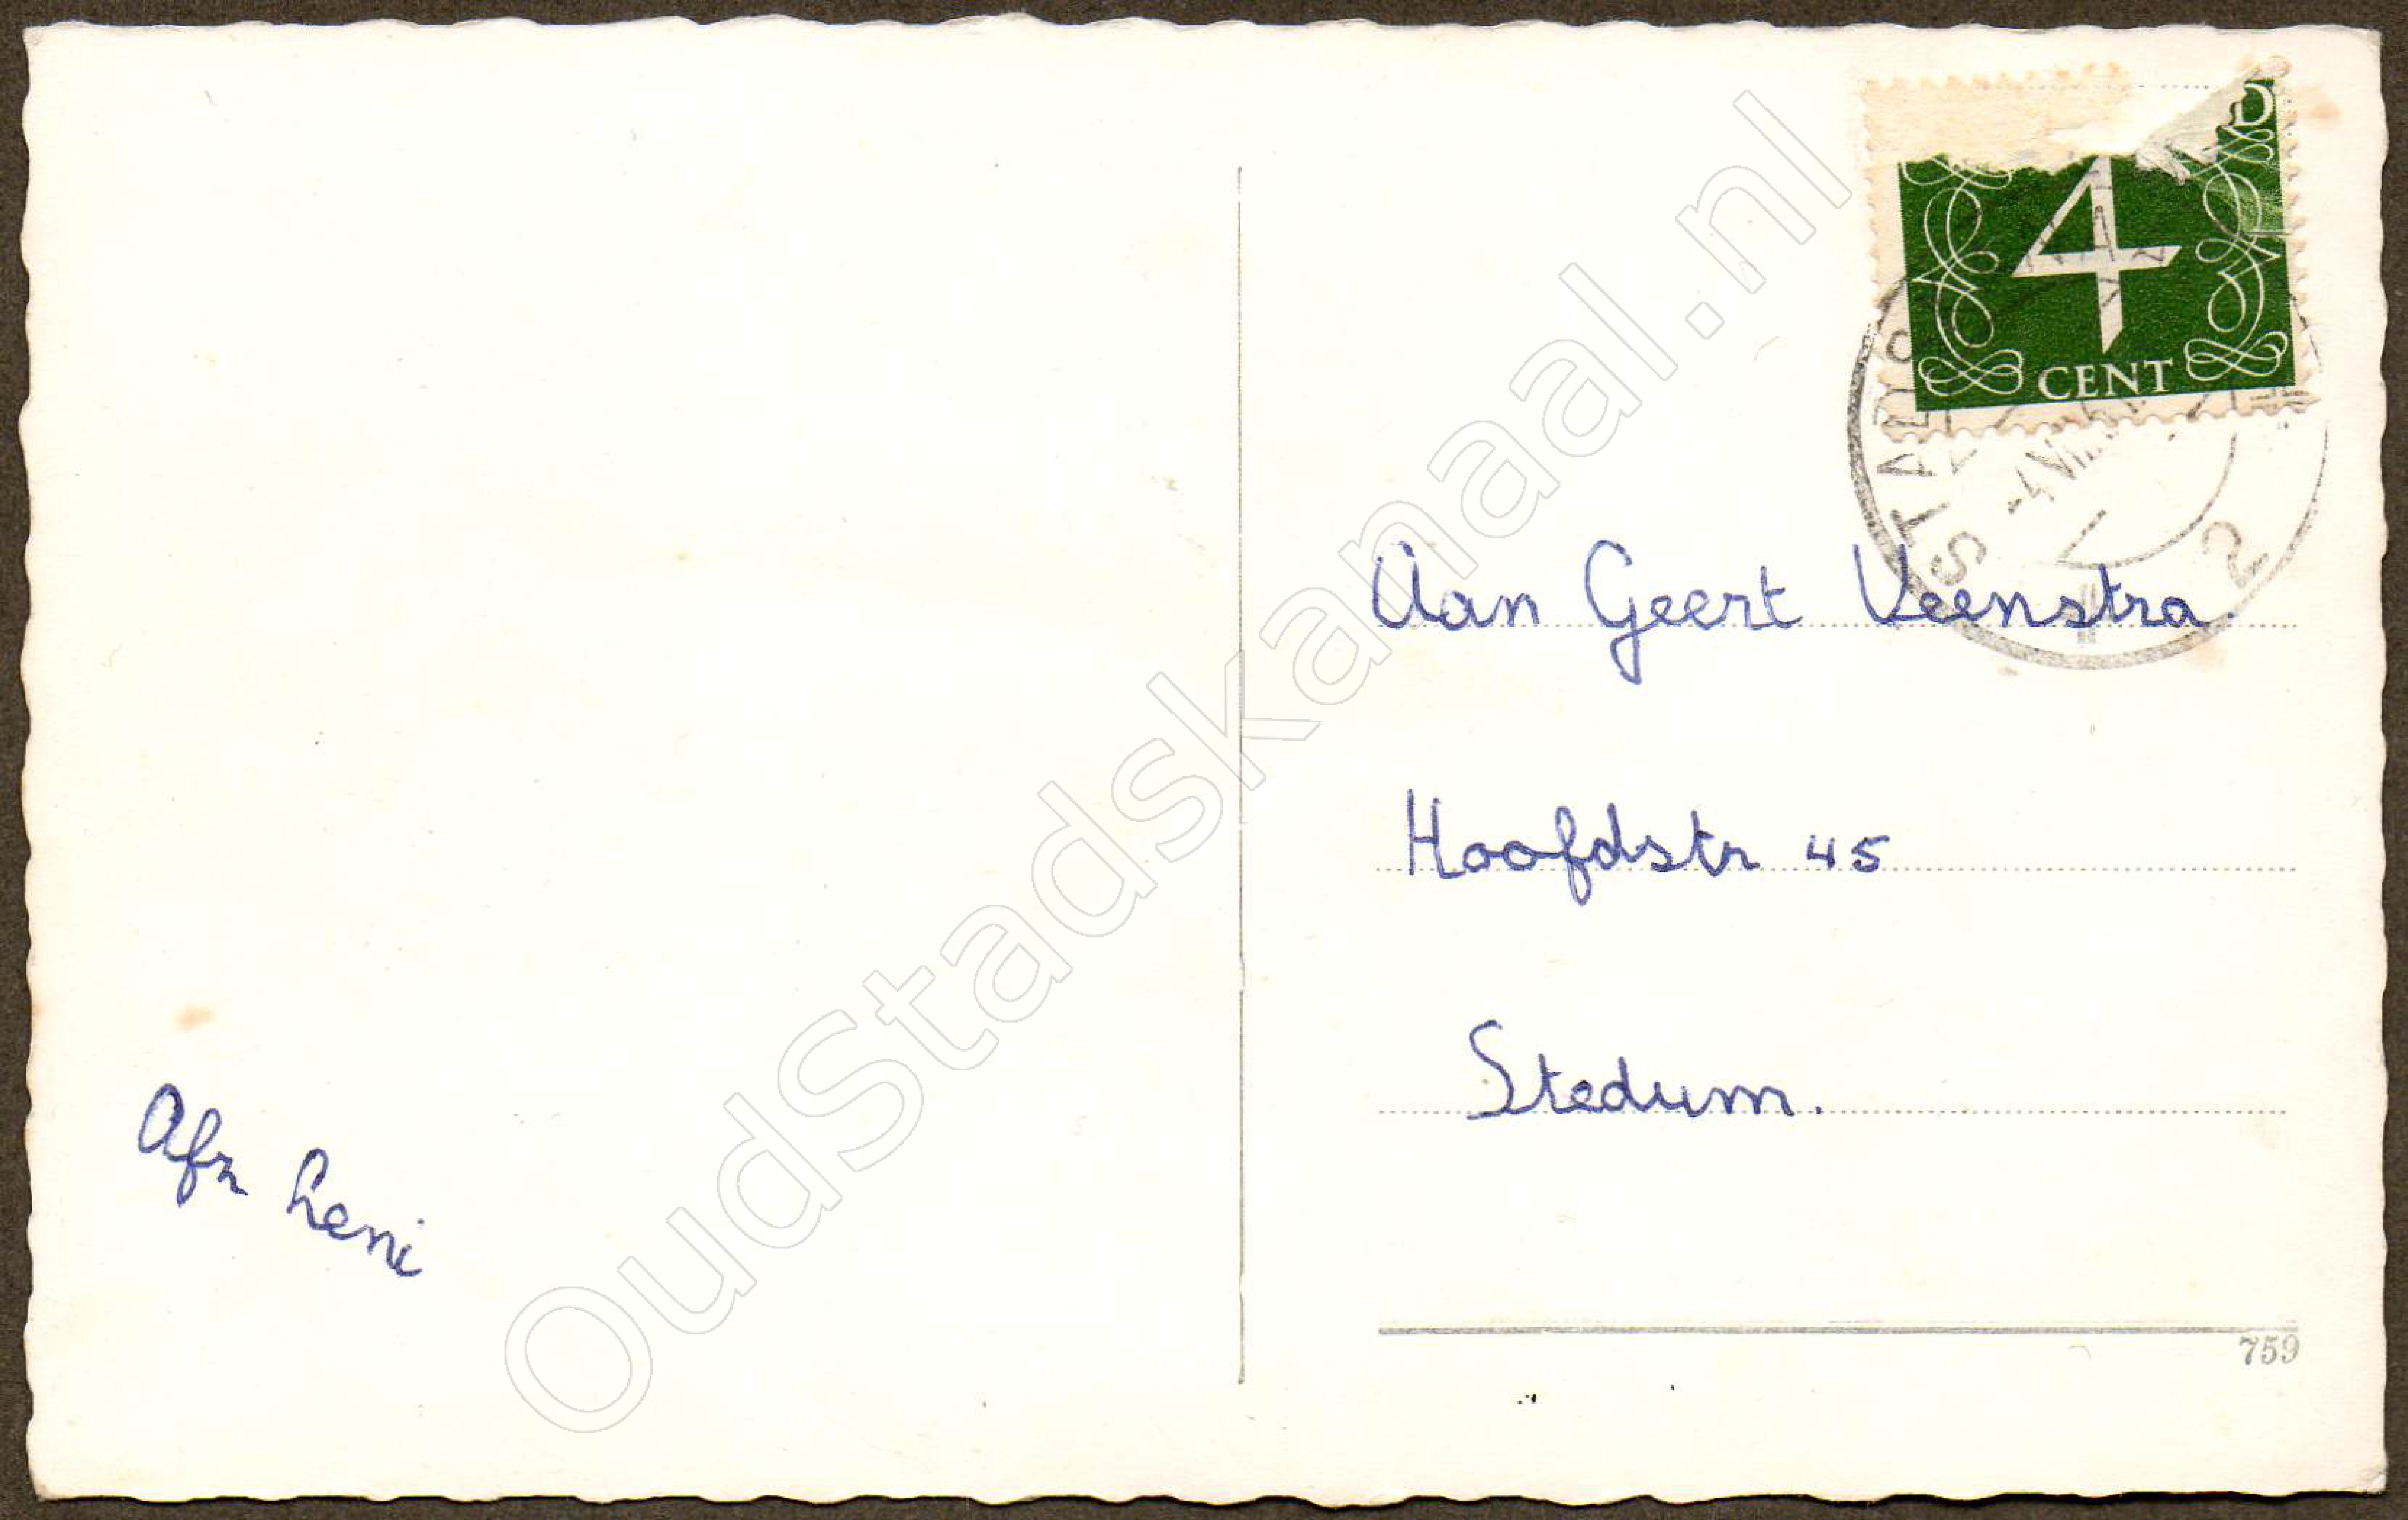 D
4
CENT
STADSK
2
Aan Geert Veenstra.
Hoofdstr 45
Stedum.
Afz Leni
759
OudStadskanaal.nl